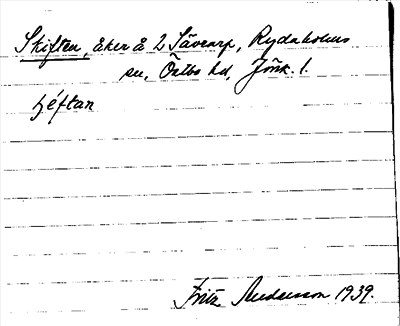 Skiften, åker å 2 Sävearp, Rydaholms
sn, Östbo hd, Jönk. l.
ʃéftan
Fritz Andersson 1939.